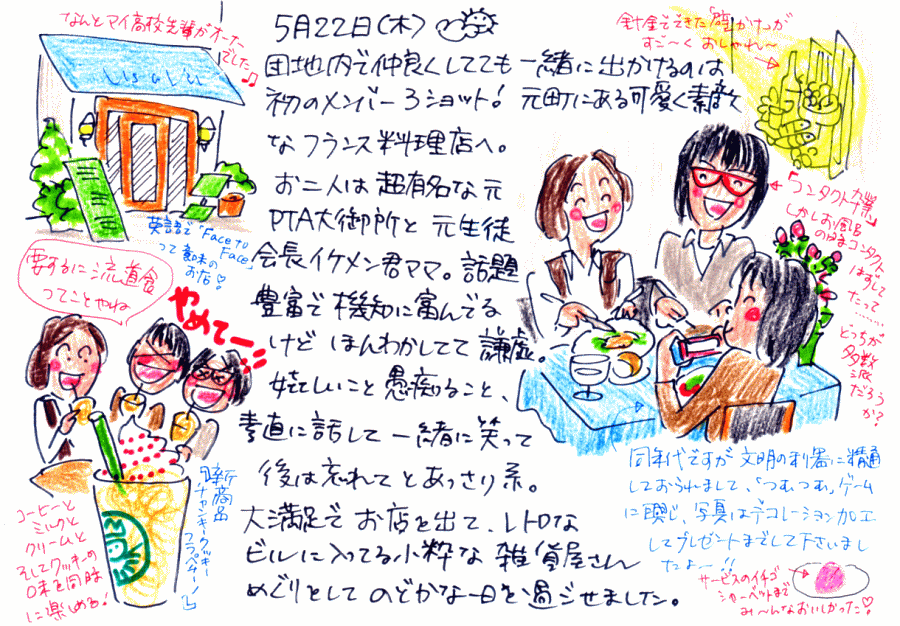 なんとマイ高校先輩がオーナー
でした♪
5月22日(木)
針金でできた「壁かけ」が
すご〜く おしゃれ〜
団地内で仲良くしてても 一緒に出かけるのは
初のメンバー3ショット! 元町にある可愛く素敵
なフランス料理店へ。
お二人は超有名な元
PTA大御所と元生徒
会長イケメン君ママ。話題
豊富で機知に富んでる
けど ほんわかしてて謙虚。
嬉しいこと愚痴ること、
素直に話して一緒に笑って
後は忘れてとあっさり系。
大満足でお店を出て、レトロな
ビルに入ってる小粋な雑貨屋さん
めぐりとしてのどかな一日を過ごせました。
英語で"Face to
Face"
って意味の
お店♡
要するに流動食
ってことやね
やめてー
「コンタクト業」
しかしお風呂
のはコンタクト
はずして
たって……
どっちが
多数
派
だろう
か?
新商品
「チャンキークッキー
フラペチーノ」
コーヒーと
ミルクと
クリームと
そしてクッキーの
味を同時
に楽しめる!
同年代ですが文明の利器に精通
しておられまして、「つむつむ」ゲーム
に興じ、写真はデコレーション加工
してプレゼントまでして下さいまし
たよー!!
サービスのイチゴ
シャーベットまで
み〜んなおいしかった♡